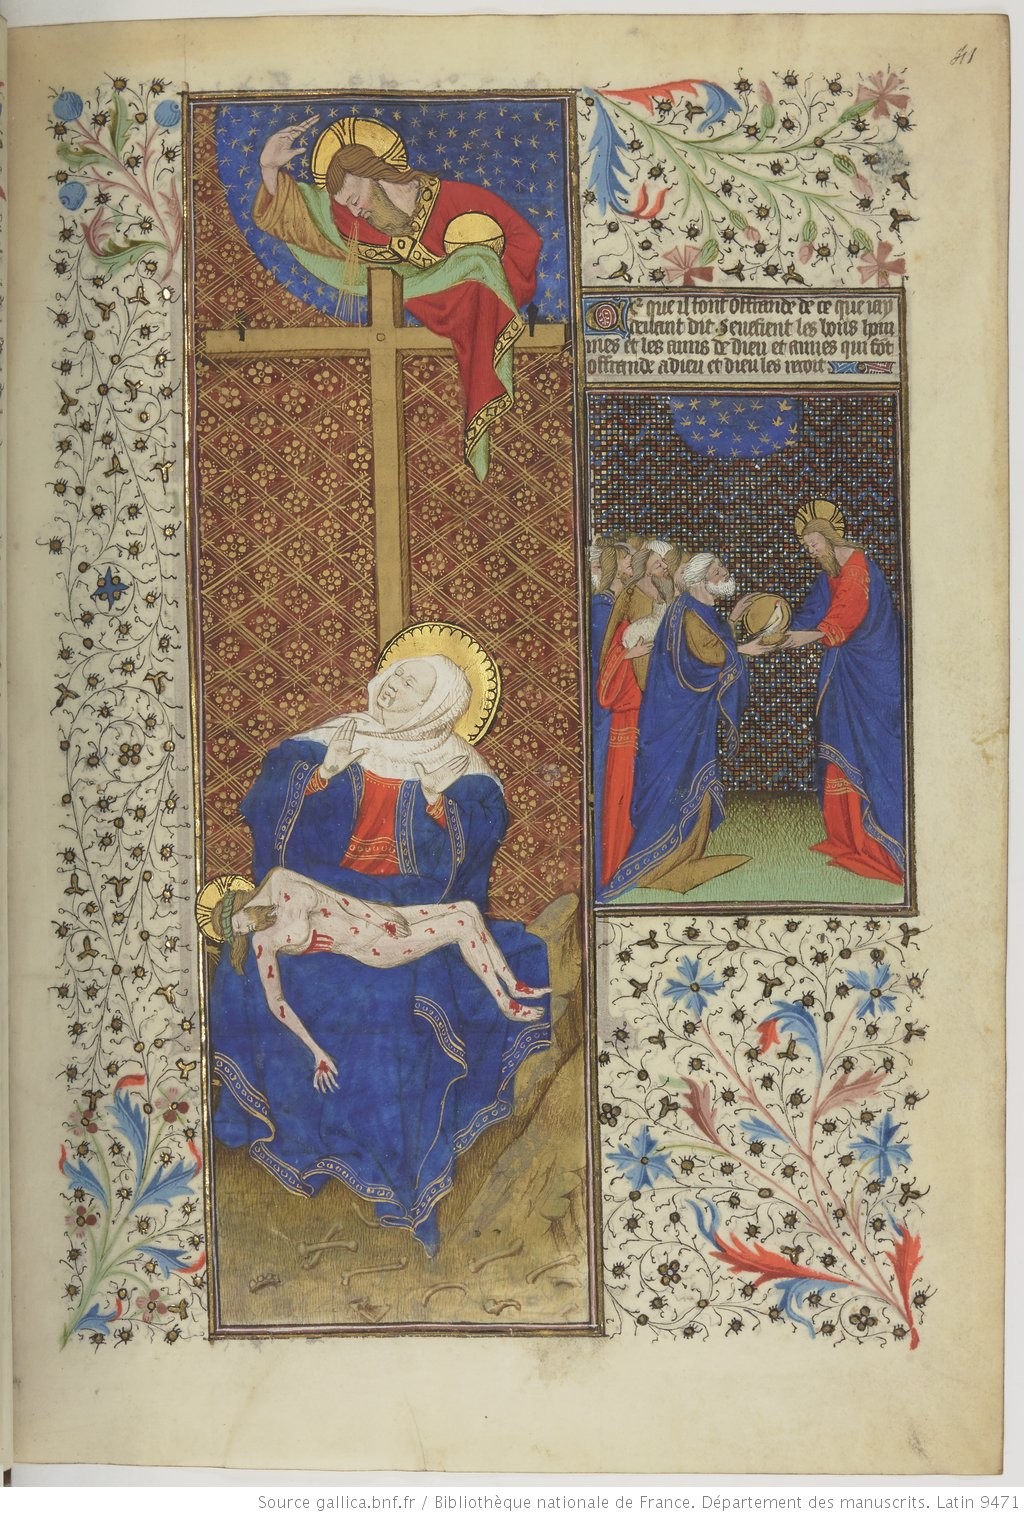 41
Ce que il font offrande de ce que iay
devant dit Senefient les bons hom
mes et les amis de dieu et amies qui fōt
offrande a dieu et dieu les recoit
Source gallica.bnf.fr / Bibliothèque nationale de France. Département des manuscrits. Latin 9471